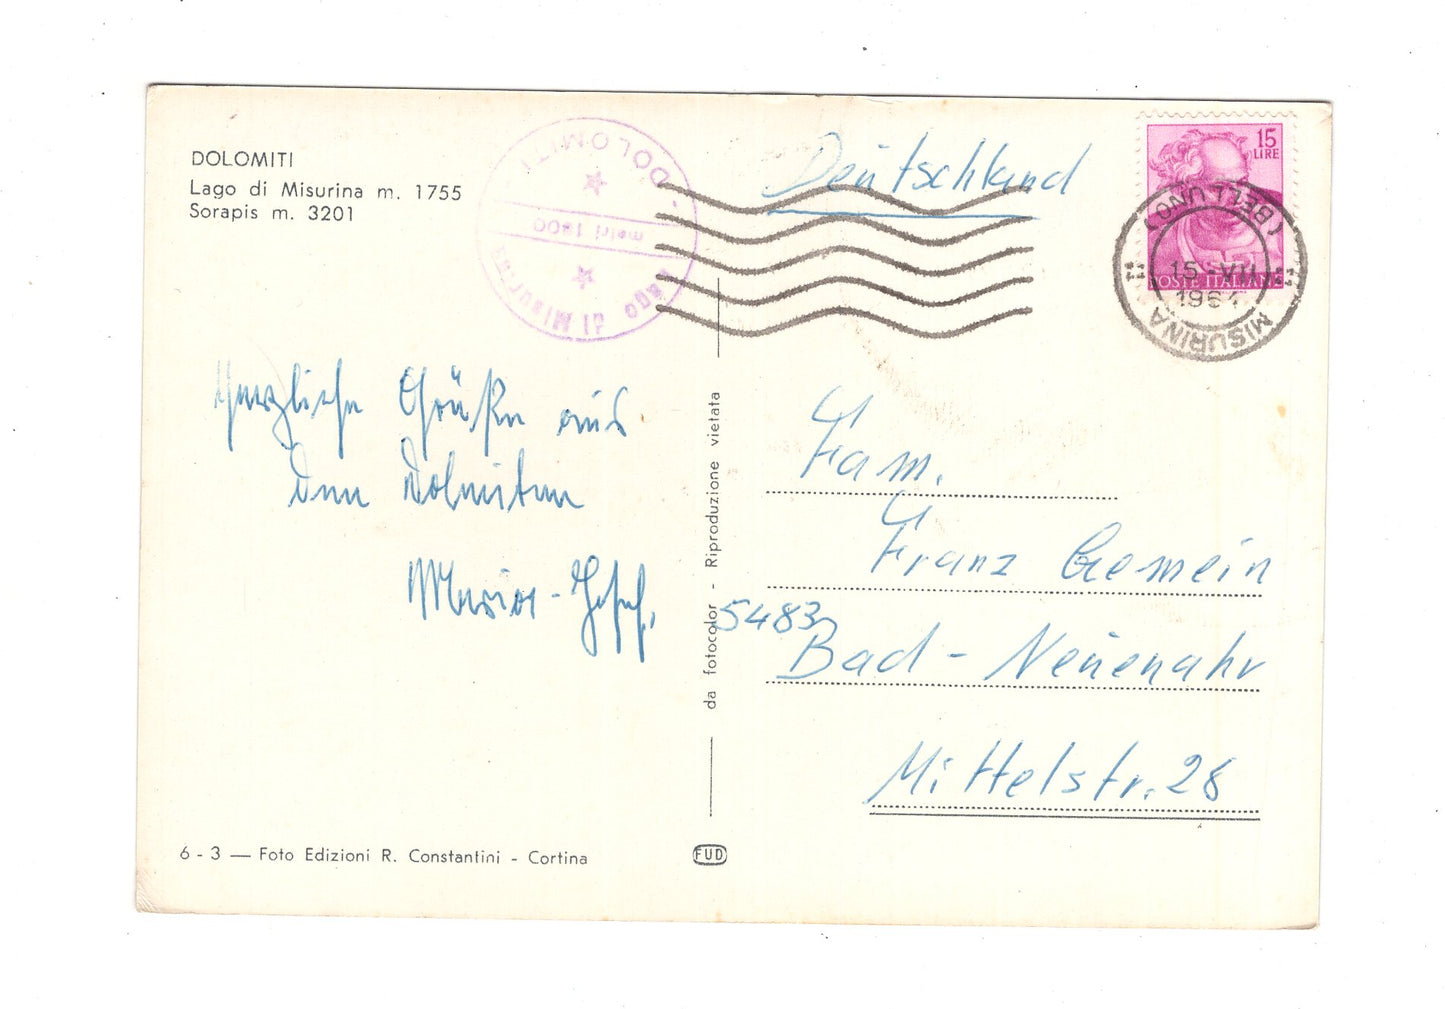 DOLOMITI
Lago di Misurina m. 1755
Sorapis m. 3201
DOLOMITI
metri 1800
Lago di Misurina
Deutschland
15
LIRE
POSTE ITALIANE
(BELLUNO)
15-VII
1964
MISURINA
Herzliche Grüße aus
den Dolmiten
Maria - Josef.
da fotocolor - Riproduzione vietata
Fam.
Franz Gemein
5483
Bad - Neuenahr
Mittelstr. 28
6 - 3 — Foto Edizioni R. Constantini - Cortina
FUD